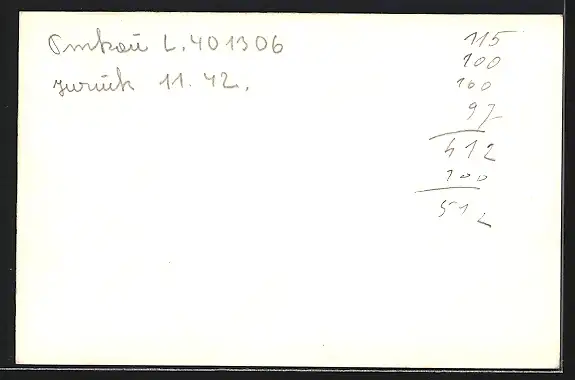 L. 401306
zurück 11. 42.
115
100
100
97
412
100
512